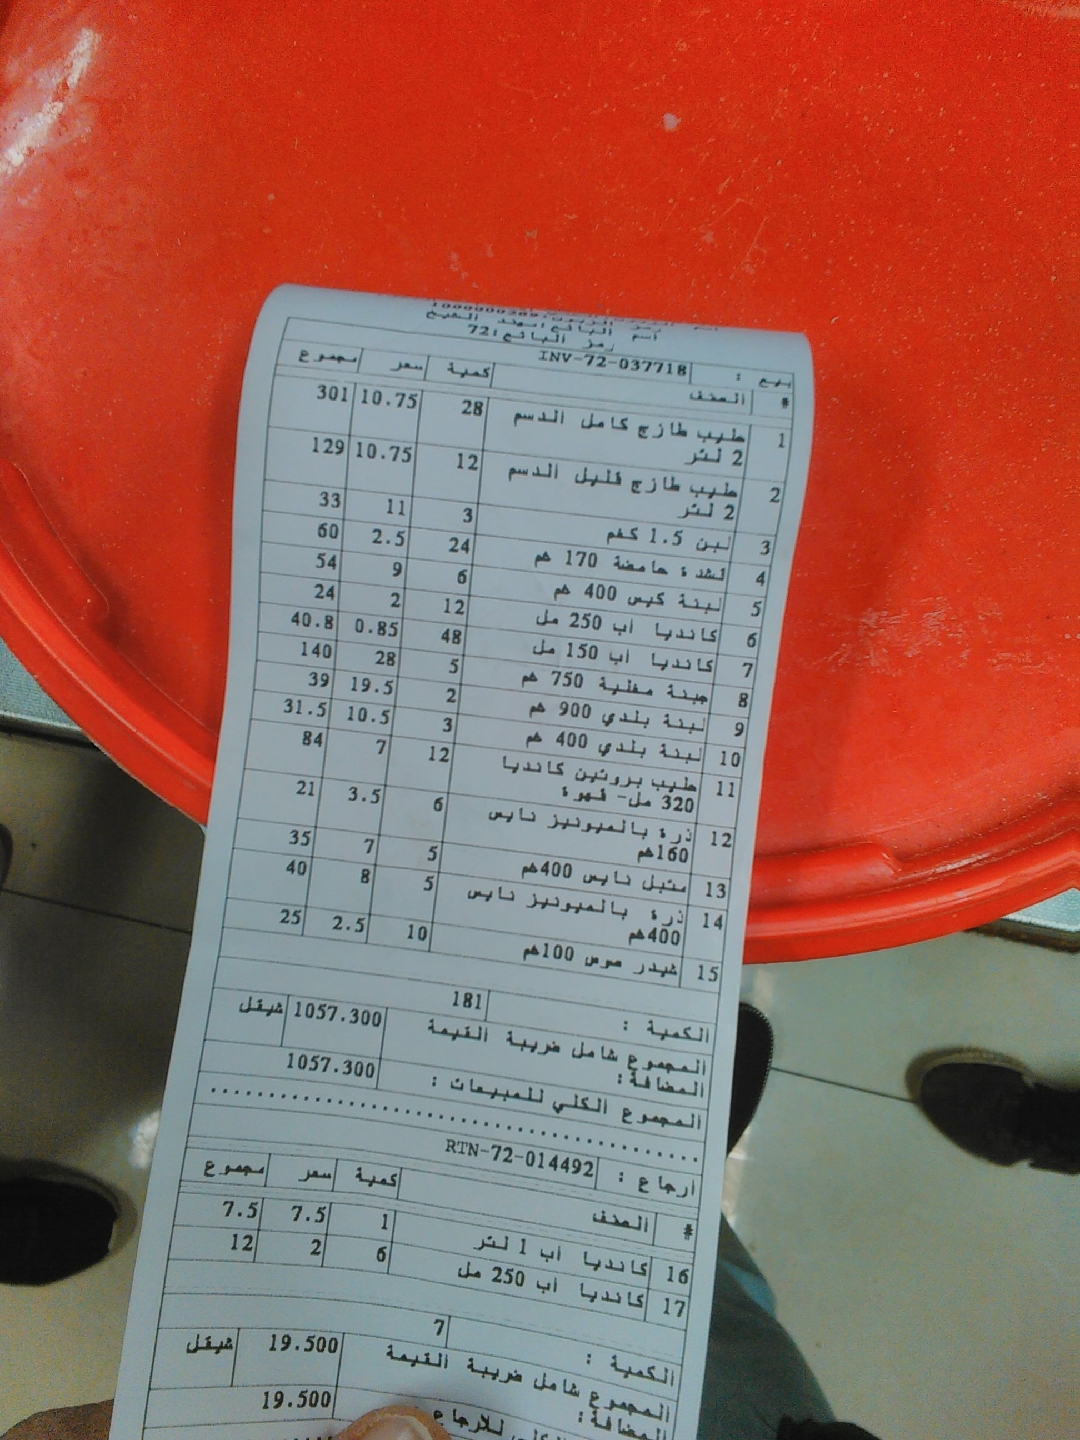 اسم البائع: مهند الشيخ
رمز البائع: 72
بيع : INV-72-037718
# الصنف كمية سعر مجموع
1 حليب طازج كامل الدسم 28 10.75 301
2 لتر
2 حليب طازج قليل الدسم 12 10.75 129
2 لتر
3 لبن 1.5 كغم 3 11 33
4 قشدة حامضة 170 غم 24 2.5 60
5 لبنة كيس 400 غم 6 9 54
6 كانديا اب 250 مل 12 2 24
7 كانديا اب 150 مل 48 0.85 40.8
8 جبنة مغلية 750 غم 5 28 140
9 لبنة بلدي 900 غم 2 19.5 39
10 لبنة بلدي 400 غم 3 10.5 31.5
11 حليب بروتين كانديا 12 7 84
320 مل- قهوة
12 ذرة بالميونيز نايس 6 3.5 21
160غم
13 متبل نايس 400غم 5 7 35
14 ذرة بالميونيز نايس 5 8 40
400غم
15 شيدر صوص 100غم 10 2.5 25
الكمية : 181
المجموع شامل ضريبة القيمة 1057.300 شيقل
المضافة:
المجموع الكلي للمبيعات : 1057.300
ارجاع : RTN-72-014492
# الصنف كمية سعر مجموع
16 كانديا اب 1 لتر 1 7.5 7.5
17 كانديا اب 250 مل 6 2 12
الكمية : 7
المجموع شامل ضريبة القيمة 19.500 شيقل
المضافة:
الكلي للارجاع : 19.500